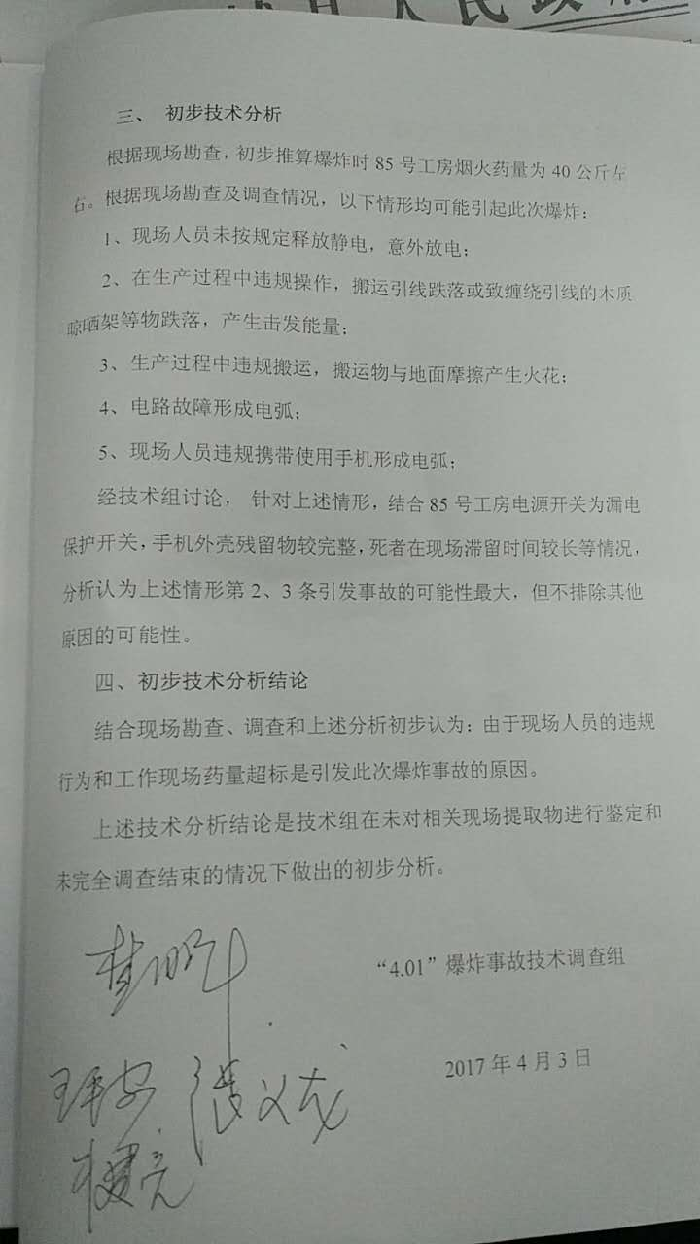 三、 初步技术分析
根据现场勘查，初步推算爆炸时 85 号工房烟火药量为 40 公斤左
右。根据现场勘查及调查情况，以下情形均可能引起此次爆炸：
1、现场人员未按规定释放静电，意外放电；
2、在生产过程中违规操作，搬运引线跌落或致缠绕引线的木质
晾晒架等物跌落，产生击发能量；
3、生产过程中违规搬运，搬运物与地面摩擦产生火花；
4、电路故障形成电弧；
5、现场人员违规携带使用手机形成电弧；
经技术组讨论， 针对上述情形，结合 85 号工房电源开关为漏电
保护开关，手机外壳残留物较完整，死者在现场滞留时间较长等情况，
分析认为上述情形第 2、3 条引发事故的可能性最大，但不排除其他
原因的可能性。
四、初步技术分析结论
结合现场勘查、调查和上述分析初步认为：由于现场人员的违规
行为和工作现场药量超标是引发此次爆炸事故的原因。
上述技术分析结论是技术组在未对相关现场提取物进行鉴定和
未完全调查结束的情况下做出的初步分析。
“4.01”爆炸事故技术调查组
2017 年 4 月 3 日